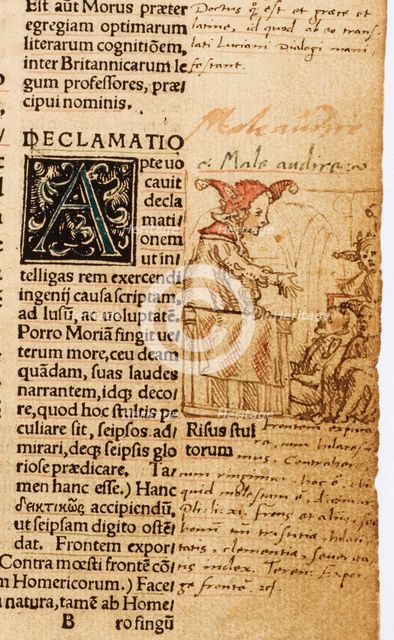 Est aūt Morus præter
egregiam optimarum
literarum cognitiōem,
inter Britannicarum le
gum professores, præ
cipui nominis.
DECLAMATIO
Apte uo
cauit
decla
mati
onem
ut in
telligas rem exercendi
ingenij causa scriptam,
ad lusū, ac uoluptatē.
Porro Moriā fingit ue
terum more, ceu deam
quādam, suas laudes
narrantem, idq; deco
re, quod hoc stultis pe
culiare sit, seipsos ad
mirari, deq; seipsis glo
riose prædicare. Ta
men hanc esse.) Hanc
δεκτικῶς accipiendū,
ut seipsam digito oste
dat. Frontem expor
Contra mœsti frontē cō
m Homericorum.) Facē
natura, tamē ab Home
B ro fingū
Doctus q est et græce et
latine, id quod ab eo trans
lati Luciani Dialogi mani
festant.
Male audire
Male audire
Risus stul
torum
frontem
hilares
mus. Contrahere
hoc ē
quid molestam ē,
Frons et
tristitia, hila
tatis, clementia, seueri
tis index. Teren: Expor
ge frontē.
heritage
Heritage
Images